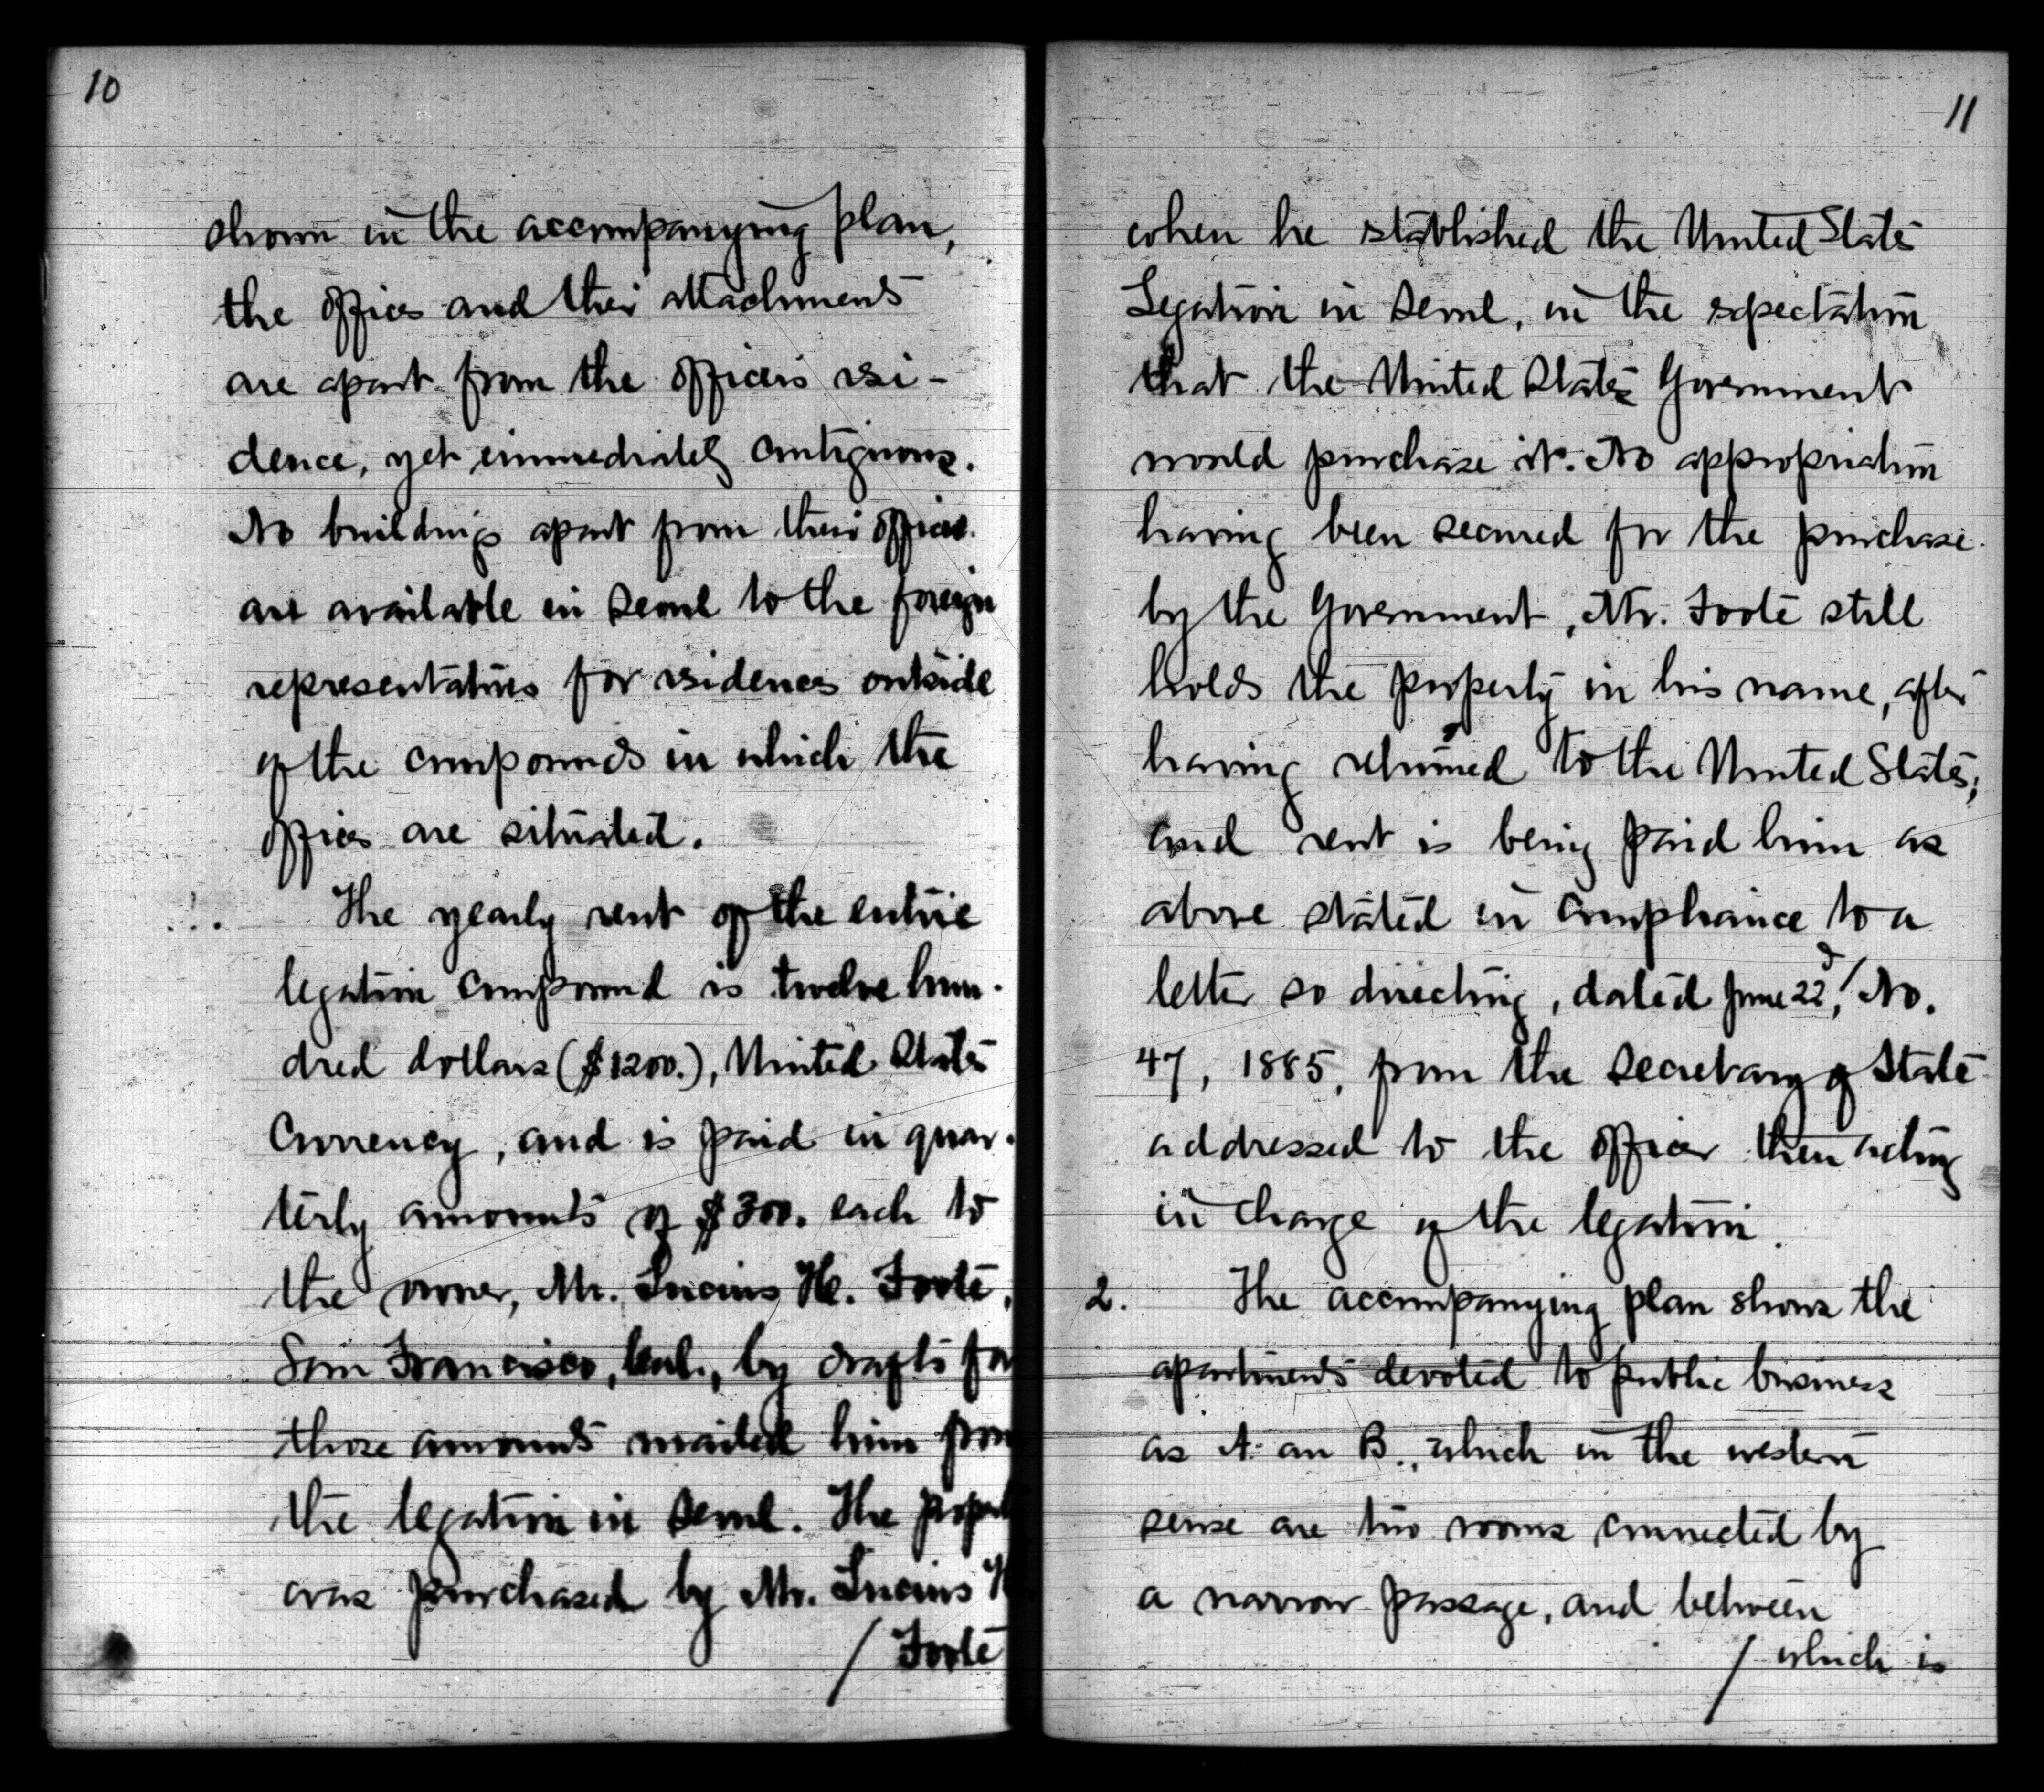 10
shown in the accompanying plan,
the offices and their attachments
are apart from the officers resi-
dence, yet immediately contiguous.
No buildings apart from their offices
are available in Seoul to the foreign
representatives for residences outside
of the compounds in which the
offices are situated.
The yearly rent of the entire
legation compound is twelve hun-
dred dollars ($1200.), United States
Currency, and is paid in quar-
terly amounts of $300. each to
the owner, Mr. Lucius H. Foote,
San Francisco, Cal., by drafts for
those amounts mailed him from
the legation in Seoul. The
was purchased by Mr. Lucius H
/ Foote
11
when he established the United States
Legation in Seoul, in the expectation
that the United States Government
would purchase it. No appropriation
having been secured for the purchase
by the Government, Mr. Foote still
holds the property in his name, after
having returned to the United States;
and rent is being paid him as
above stated in compliance to a
letter so directing, dated June 22d, / No.
47, 1885, from the Secretary of State
addressed to the officer then acting
in charge of the legation.
2. The accompanying plan shows the
apartments devoted to public business
as A. an B., which in the western
sense are two rooms connected by
a narrow passage, and between
/ which is